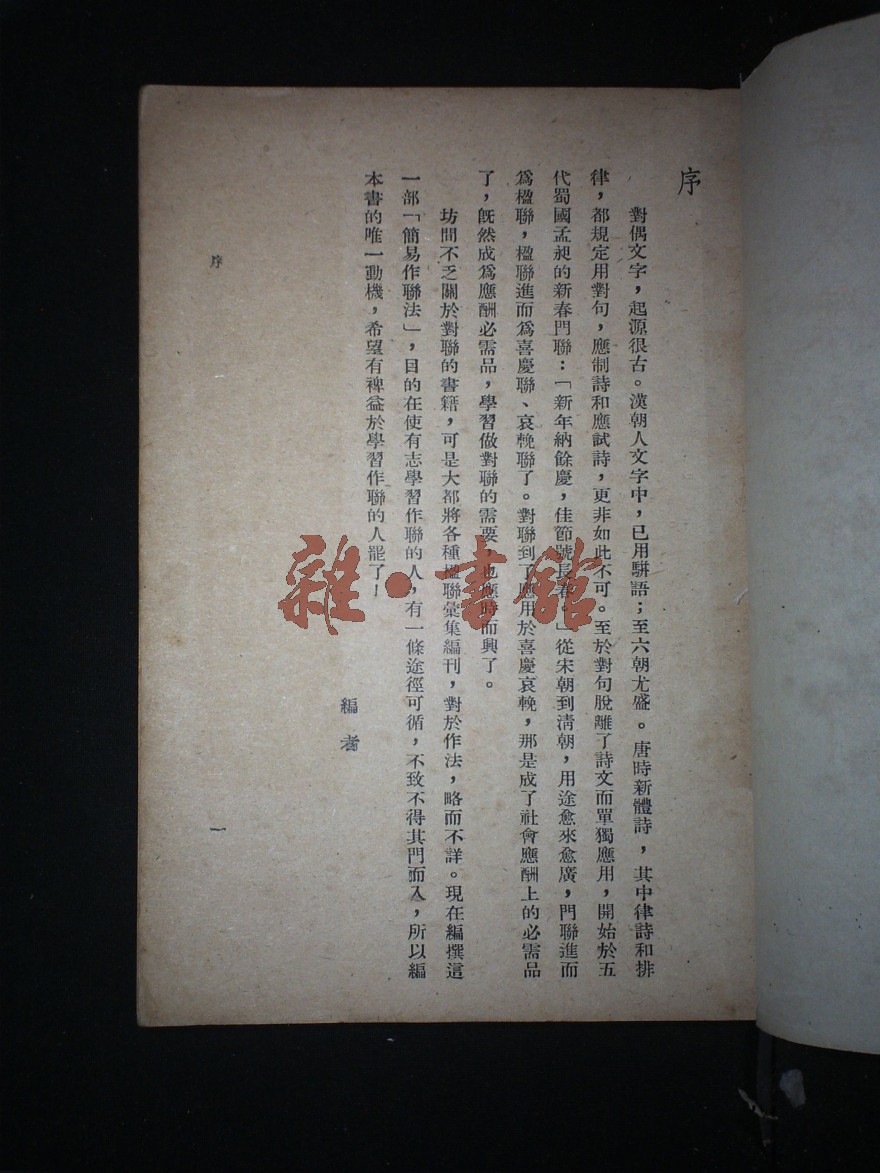 序
對偶文字，起源很古。漢朝人文字中，已用駢語；至六朝尤盛。唐時新體詩，其中律詩和排
律，都規定用對句，應制詩和應試詩，更非如此不可。至於對句脫離了詩文而單獨應用，開始於五
代蜀國孟昶的新春門聯：「新年納餘慶，佳節號長春。」從宋朝到清朝，用途愈來愈廣，門聯進而
爲楹聯，楹聯進而爲喜慶聯、哀輓聯了。對聯到了應用於喜慶哀輓，那是成了社會應酬上的必需品
了，旣然成爲應酬必需品，學習做對聯的需要，也應時而興了。
坊間不乏關於對聯的書籍，可是大都將各種楹聯彙集編刊，對於作法，略而不詳。現在編撰這
一部「簡易作聯法」，目的在使有志學習作聯的人，有一條途徑可循，不致不得其門而入，所以編
本書的唯一動機，希望有裨益於學習作聯的人罷了！
編者
序
一
雜·書館